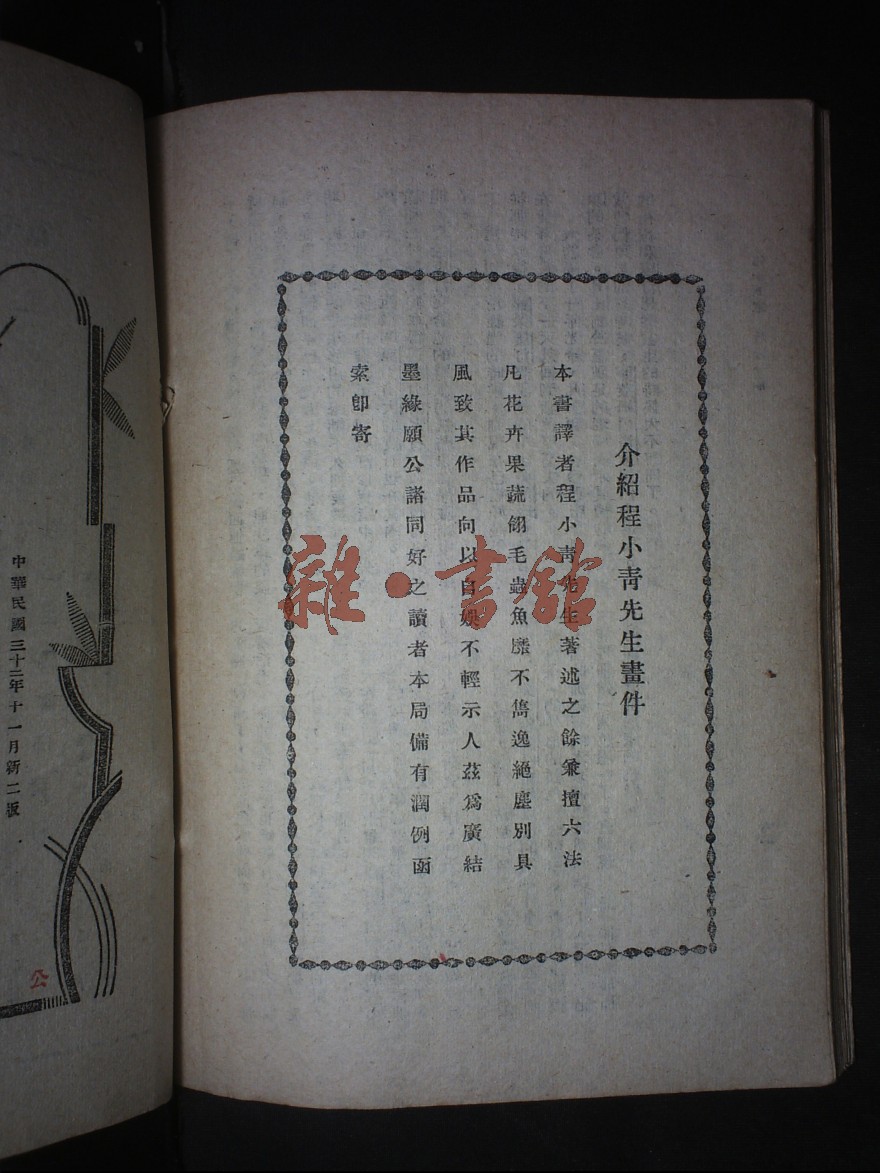 介紹程小靑先生畫件
本書譯者程小靑先生著述之餘兼擅六法
凡花卉果蔬翎毛蟲魚靡不雋逸絕塵別具
風致其作品向以自娛不輕示人茲爲廣結
墨緣願公諸同好之讀者本局備有潤例函
索卽寄
中華民國三十二年十一月新二版
公
雜·書館